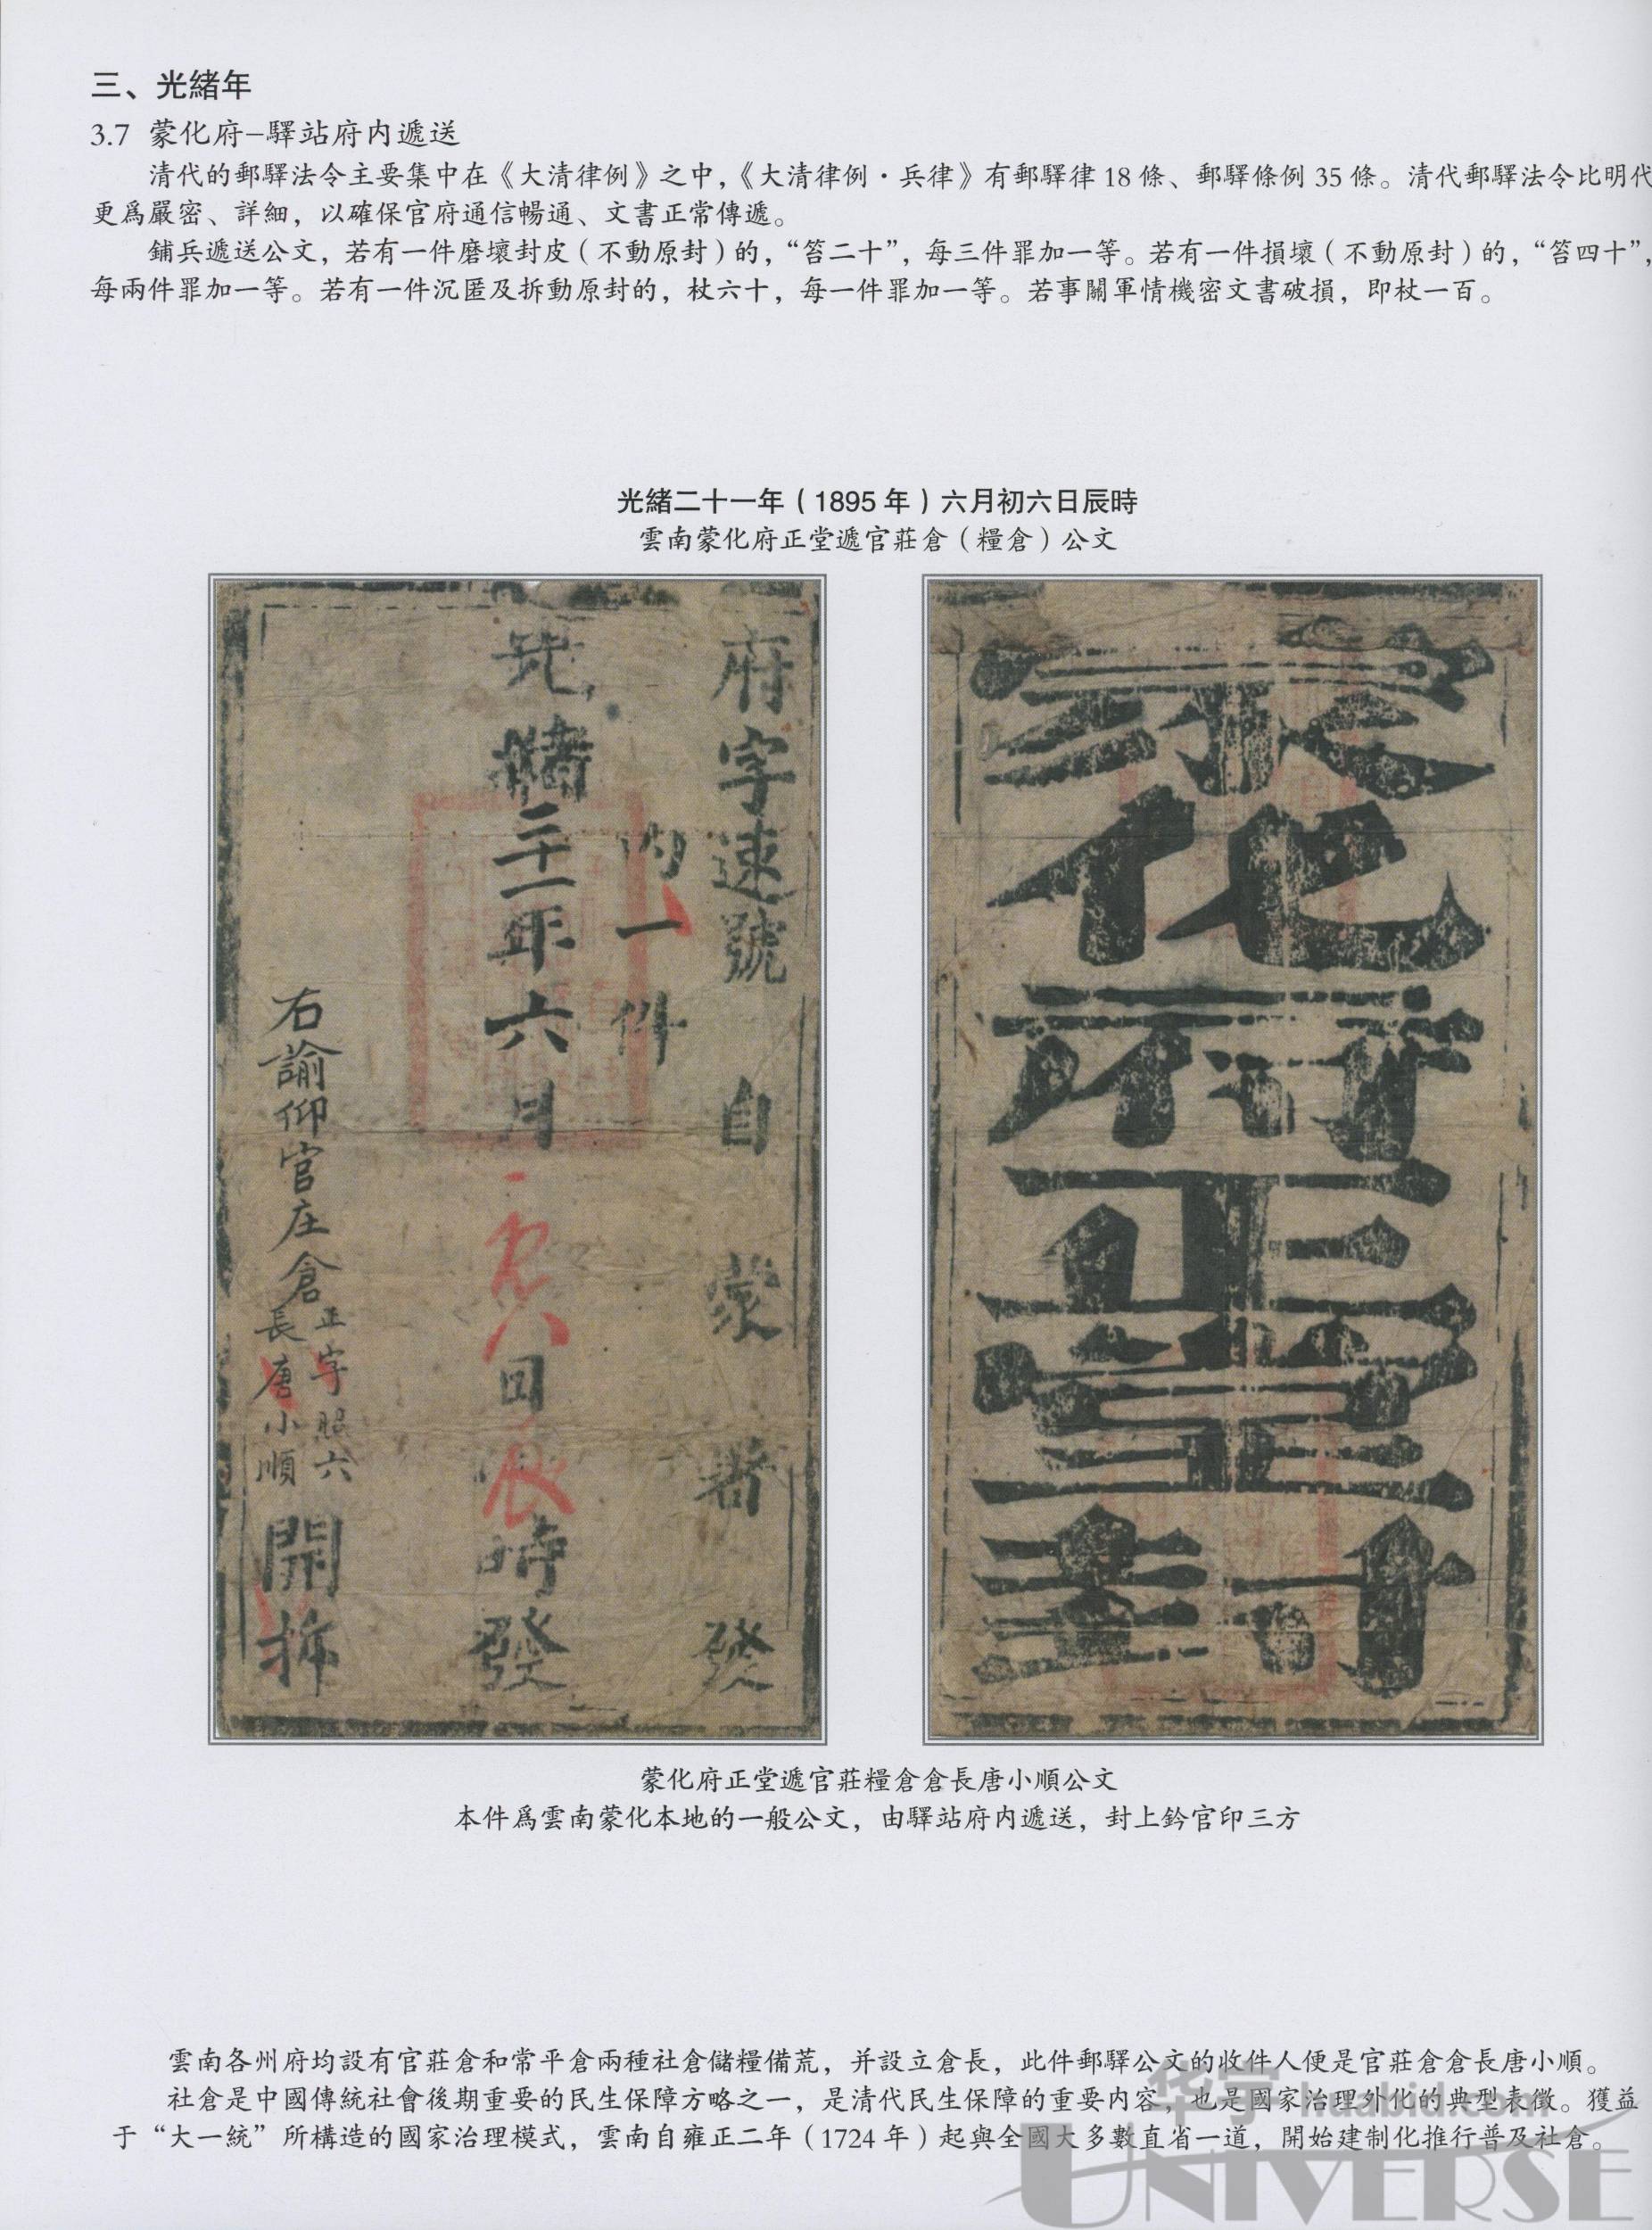 三、光緒年
3.7 蒙化府–驛站府内遞送
清代的郵驛法令主要集中在《大清律例》之中，《大清律例·兵律》有郵驛律 18 條、郵驛條例 35 條。清代郵驛法令比明代
更爲嚴密、詳細，以確保官府通信暢通、文書正常傳遞。
鋪兵遞送公文，若有一件磨壞封皮（不動原封）的，“笞二十”，每三件罪加一等。若有一件損壞（不動原封）的，“笞四十”，
每兩件罪加一等。若有一件沉匿及拆動原封的，杖六十，每一件罪加一等。若事關軍情機密文書破損，即杖一百。
光緒二十一年（1895 年）六月初六日辰時
雲南蒙化府正堂遞官莊倉（糧倉）公文
府字速號自蒙署發
内一件
光緒二十一年六月初六日辰時發
右諭仰官庄倉
正字照六
長唐小順
開拆
蒙化府正堂封
蒙化府正堂遞官莊糧倉倉長唐小順公文
本件爲雲南蒙化本地的一般公文，由驛站府内遞送，封上鈐官印三方
雲南各州府均設有官莊倉和常平倉兩種社倉儲糧備荒，并設立倉長，此件郵驛公文的收件人便是官莊倉倉長唐小順。
社倉是中國傳統社會後期重要的民生保障方略之一，是清代民生保障的重要内容，也是國家治理外化的典型表徵。獲益
于“大一統”所構造的國家治理模式，雲南自雍正二年（1724 年）起與全國大多數直省一道，開始建制化推行普及社倉。
华宇 huabid.com
UNIVERSE